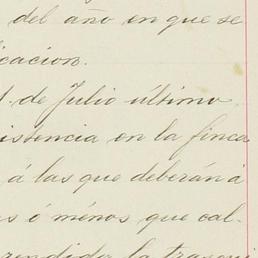 del año en que se
icacion.
1. de Julio último
istencia en la finca
á las que deberán á
s ó ménos que cal-
rendido la trasqui